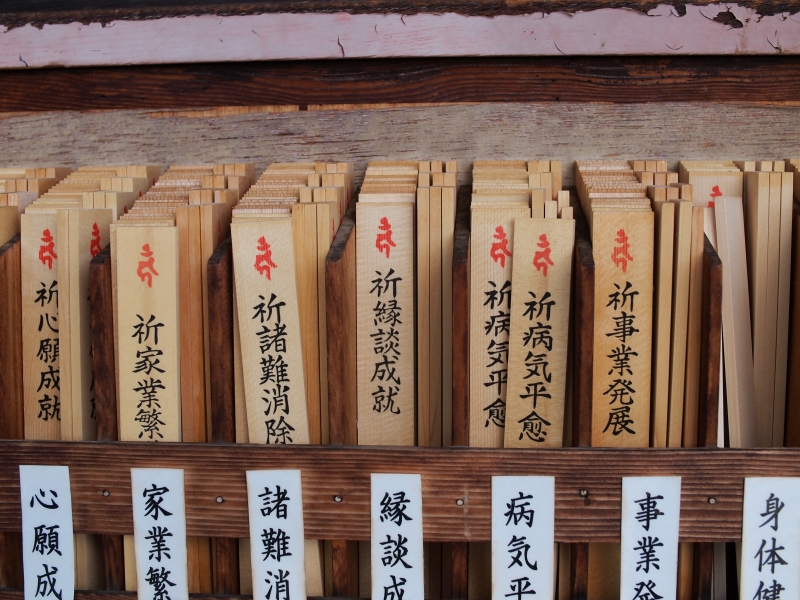 祈心願成就
祈家業繁
祈諸難消除
祈縁談成就
祈病気平愈
祈病気平愈
祈事業発展
心願成
家業繁
諸難消
縁談成
病気平
事業発
身体健